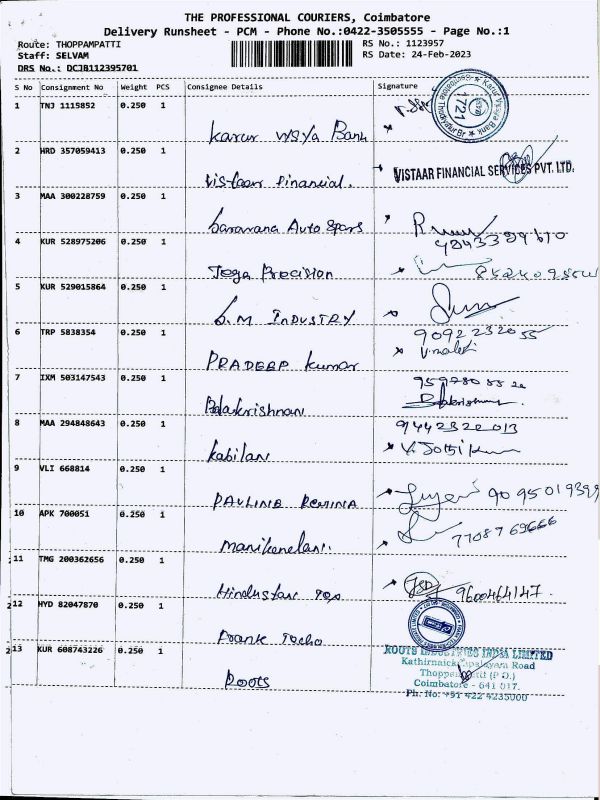 THE PROFESSIONAL COURIERS, Coimbatore
Delivery Runsheet - PCM - Phone No.:0422-3505555 - Page No.:1
Route: THOPPAMPATTI
RS No.: 1123957
Staff: SELVAM
RS Date: 24-Feb-2023
DRS No.: DCJB112395701
S No Consignment No Weight PCS Consignee Details Signature
1 TNJ 1115852 0.250 1
Karur Vysya Bank
2 HRD 357059413 0.250 1
Vistaar Financial. VISTAAR FINANCIAL SERVICES PVT. LTD.
3 MAA 300228759 0.250 1
Saravana Auto Spars
4 KUR 528975206 0.250 1
Joga Precision
5 KUR 529015864 0.250 1
S.M INDUSTRY
6 TRP 5838354 0.250 1
9092232055
PRADEEP Kumar
7 IXM 503147543 0.250 1
Balakrishnan Balakrishnan
8 MAA 294848643 0.250 1
9442322013
Kabilan
9 VLI 668814 0.250 1
PAULINA REMINA
10 APK 700051 0.250 1
7708769666
Manikandan.
11 TMG 200362656 0.250 1
Hindustan 9600464147.
12 HYD 82047870 0.250 1
Frank Techo
13 KUR 608743226 0.250 1
ROOTS INDUSTRIES INDIA LIMITED
Kathirnaickenpalayam Road
Thoppampatti (P.O.)
Roots Coimbatore - 641 017.
Ph. No: +91 422 4235000